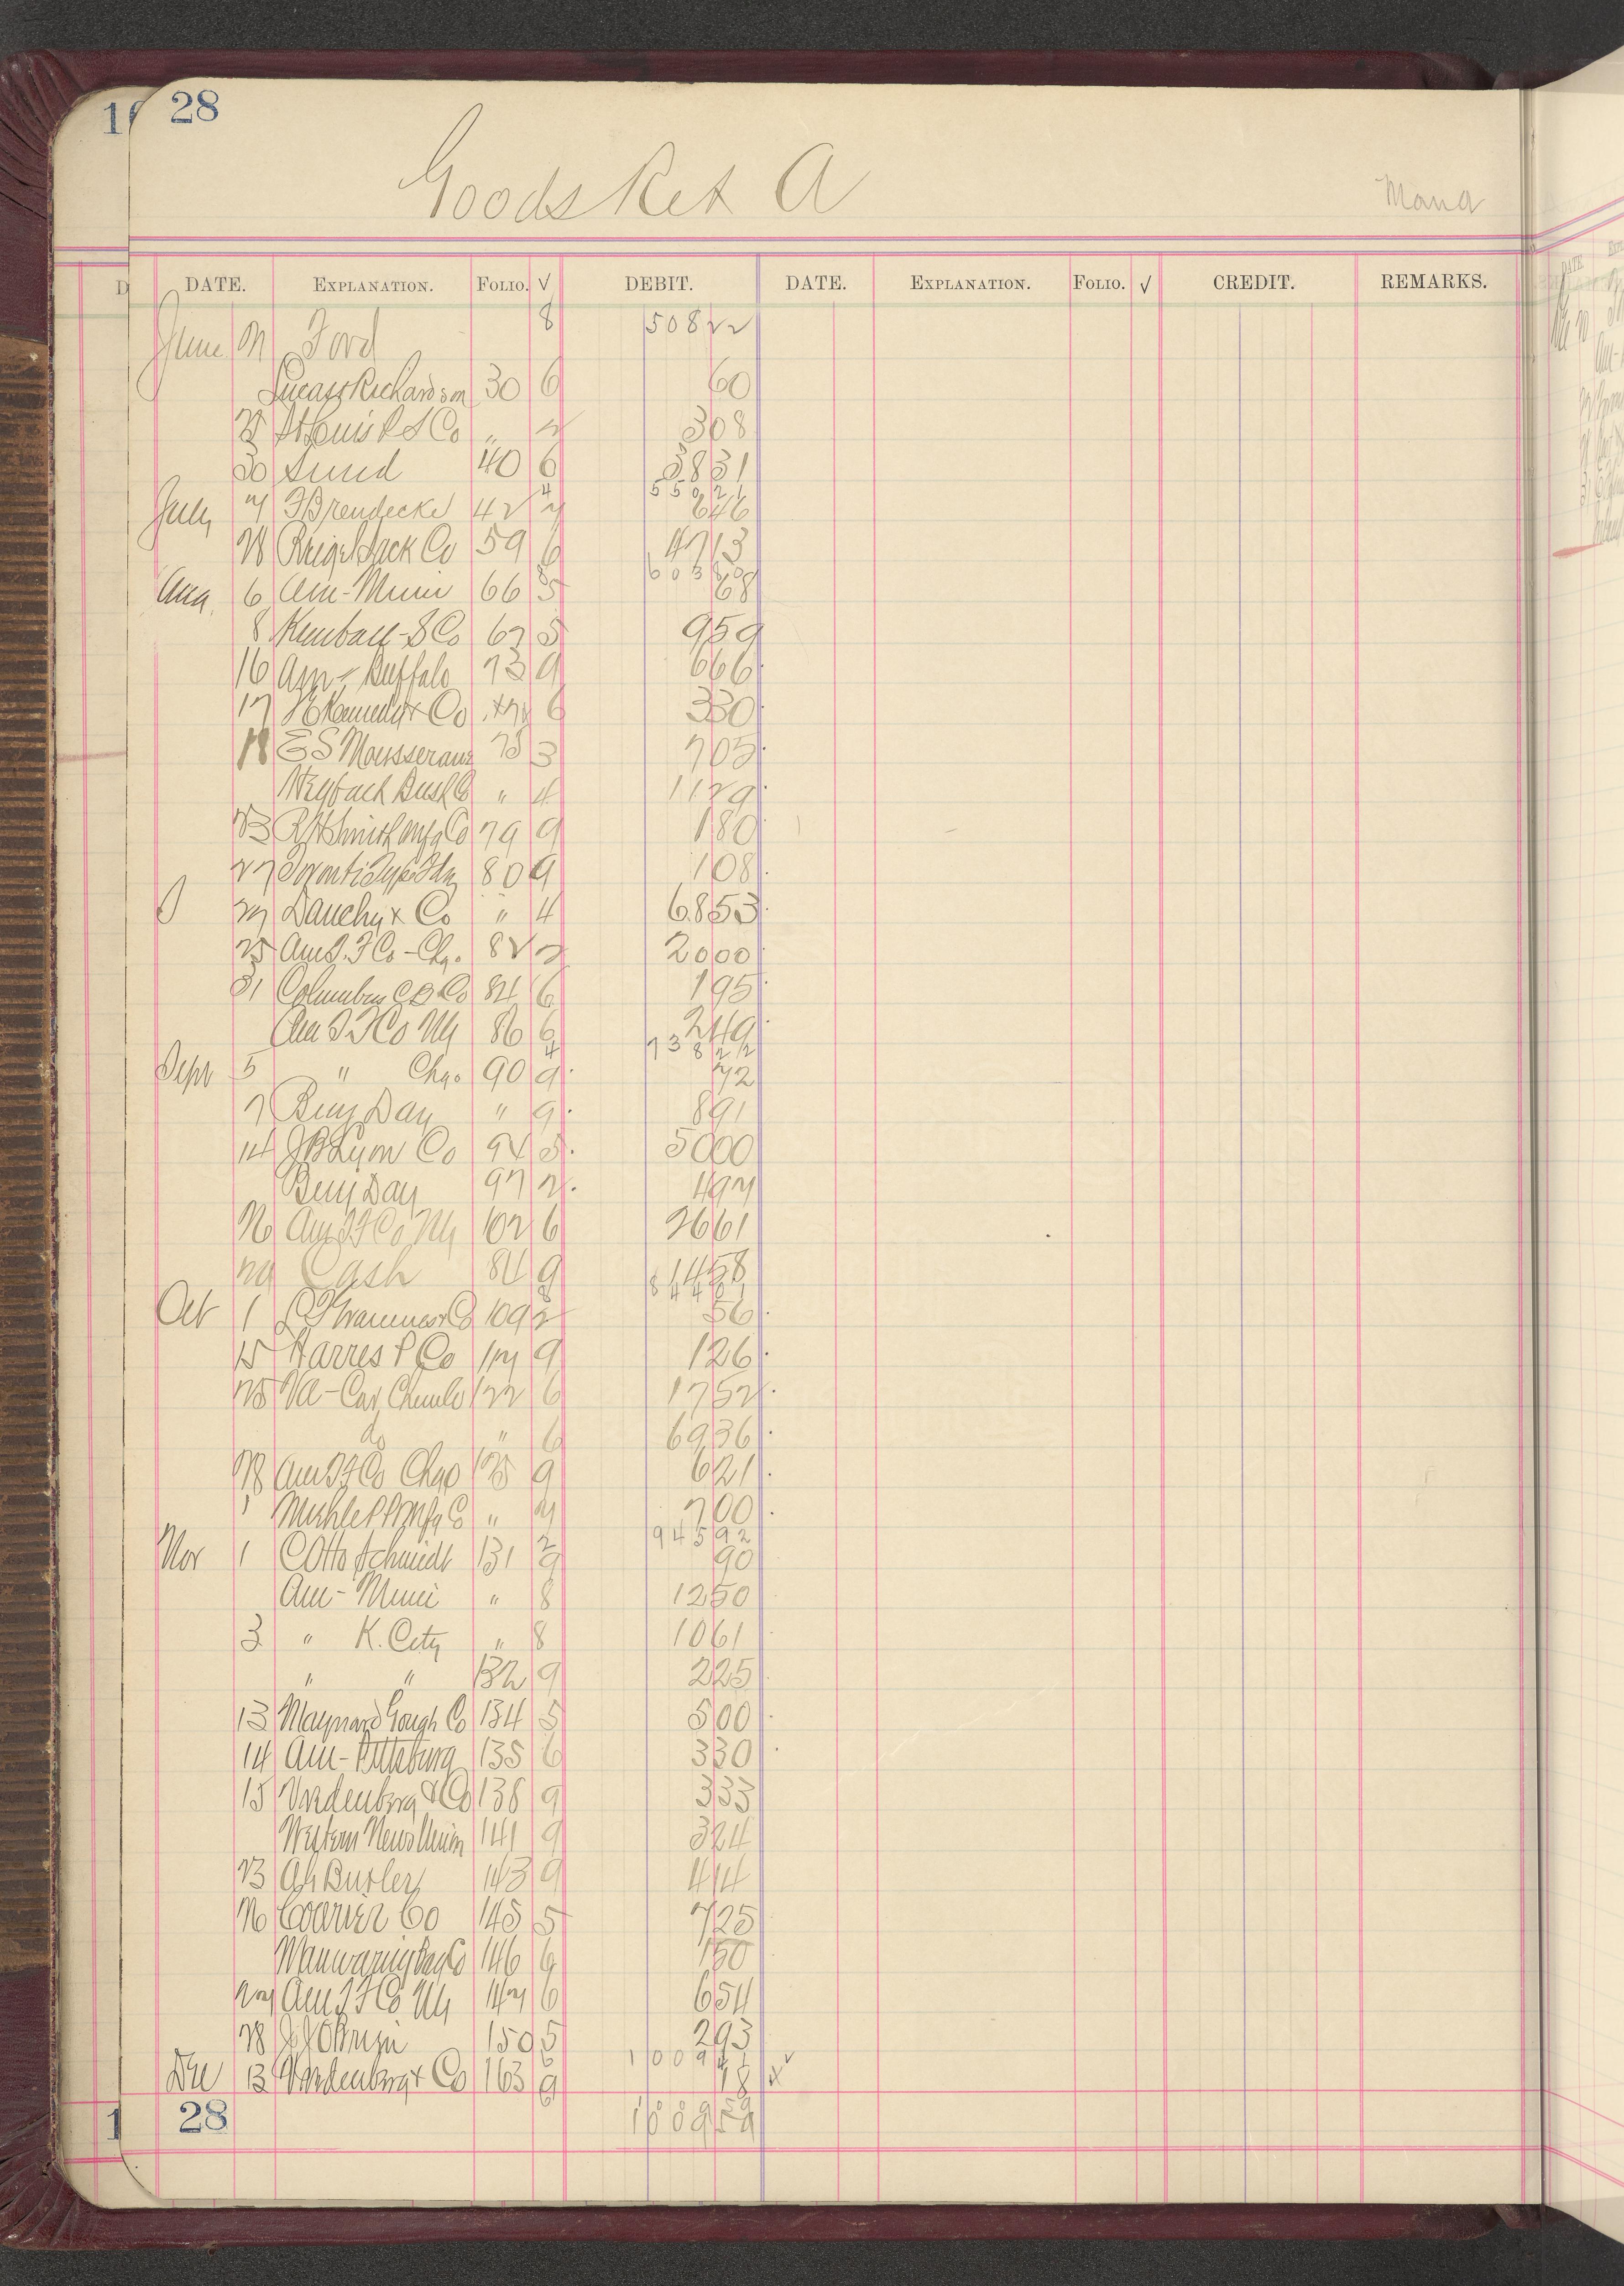 28
Goods Ret A
Mana
DATE. EXPLANATION. FOLIO. √ DEBIT. DATE. EXPLANATION. FOLIO. √ CREDIT. REMARKS.
June Ford 8 50822
Lucas & Richardson 30 6 60
25 St Louis P S Co " 2 308
30 Lind 40 6 3831
55021
July F Brendecke 42 646
28 Co 59 6 4713
60380
Aug 6 Am - Minn 66 5 68
8 Kimball - S Co 67 5 959
16 Am - Buffalo 73 9 666
17 Kennedy & Co 6 330
18 E S 75 3 705
" 4 1129
23 R H Smith Mfg Co 79 9 180
27 80 9 108
27 Dauchy & Co " 4 6853
25 Am T. F Co - Chgo. 82 2 2000
31 Columbus C B Co 84 6 195
Am T F Co NY 86 6 249
73822
Sept 5 " Chgo 90 9 72
7 Benj Day " 9 891
14 J B Lyon Co 92 5 5000
Benj Day 97 2 497
26 Am T F Co NY 102 6 2661
29 Cash 84 9 1458
84401
Oct 1 Co 109 2 56
15 Harris P Co 117 9 126
25 Va - Car Chemle 122 6 1752
do " 6 6936
28 Am T F Co Chgo 125 9 621
Miehle P P Mfg Co " 700
94592
Nov 1 C Otto Schmidt 131 9 90
Am - Minn " 8 1250
3 " K. City " 8 1061
" " 132 9 225
13 Maynard Gough Co 134 5 500
14 Am - Pittsburg 135 6 330
15 Vredenburg & Co 136 9 333
Western News Union 141 9 324
23 Butler 143 9 414
26 Courier Co 145 5 725
146 6 150
27 Am T F Co NY 147 6 654
28 J J O'Brien 150 5 293
100941
Dec 13 Vredenburg & Co 163 9 18
28 100959